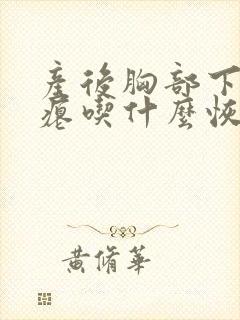 産後胸部下
瘪喫什麼恢
黃脩華